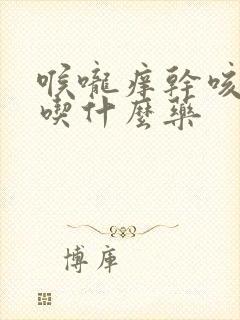 喉嚨痒幹咳
喫什麼藥
博庫